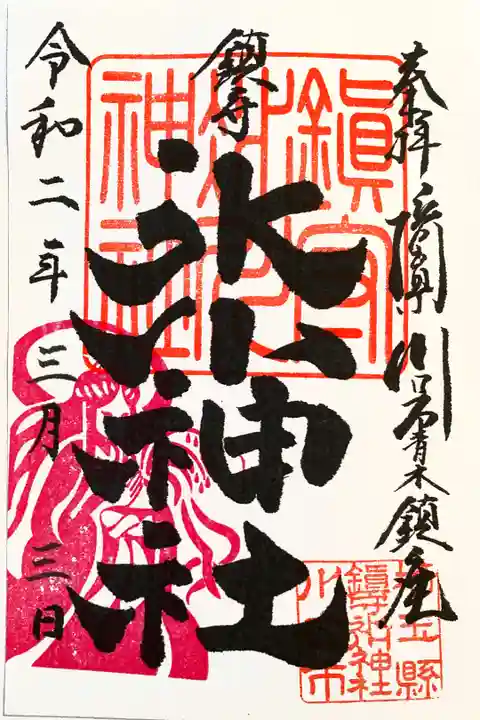 奉拝 川口市青木鎮座
鎮守
氷川神社
令和二年 三月 三日
鎮守
氷川
神社
埼玉縣
鎮守氷川神社
川口市